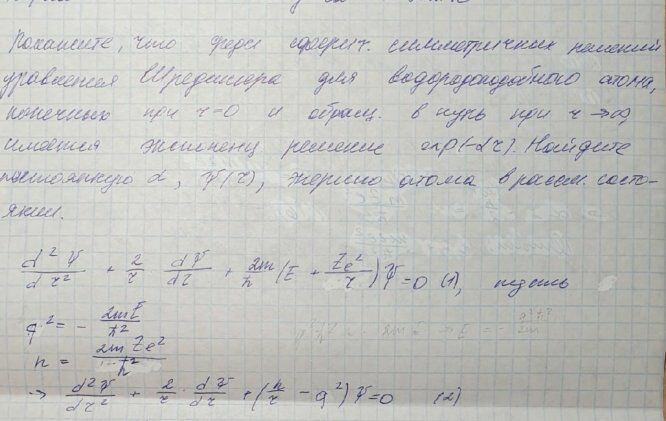 Покажите, что среди сферич. симметричных решений
уравнения Шредингера для водородоподобного атома,
конечных при r=0 и обращ. в нуль при r→∞,
имеется экспоненц решение exp(-αr). Найдите
постоянную α, Ψ(r), энергию атома в рассм. состо-
янии.
d²Ψ/dr² + 2/r dΨ/dr + 2m/ħ (E + Ze²/r) Ψ = 0 (1), пусть
q² = - 2mE/ħ²
n = 2m Ze²/ħ²
→ d²Ψ/dr² + 2/r · dΨ/dr + (n/r - q²) Ψ = 0 (2)